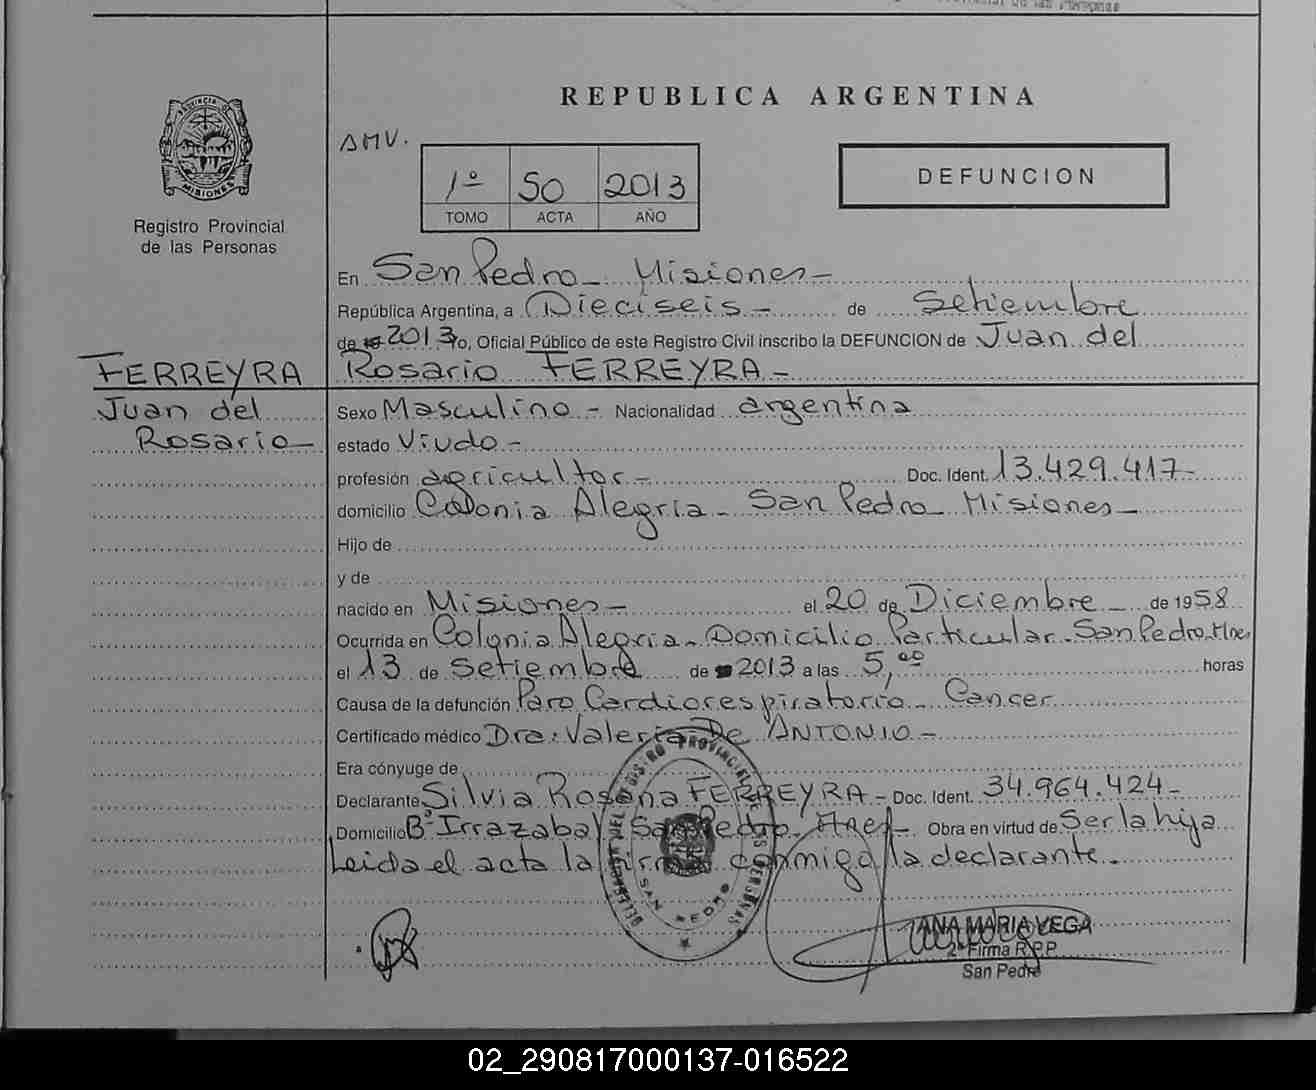 de las Personas
REPUBLICA ARGENTINA
PROVINCIA DE
MISIONES
Registro Provincial
de las Personas
AMV.
1º 50 2013
TOMO ACTA AÑO
DEFUNCION
En San Pedro - Misiones -
República Argentina, a Dieciseis - de Setiembre
de 2013 yo, Oficial Público de este Registro Civil inscribo la DEFUNCION de Juan del
Rosario FERREYRA -
FERREYRA
Juan del
Rosario -
Sexo Masculino - Nacionalidad argentina
estado Viudo -
profesión agricultor - Doc. Ident. 13.429.417 -
domicilio Colonia Alegria - San Pedro - Misiones -
Hijo de
y de
nacido en Misiones - el 20 de Diciembre - de 1958
Ocurrida en Colonia Alegria - Domicilio Particular - San Pedro - Mnes
el 13 de Setiembre de 2013 a las 5,00 horas
Causa de la defunción Paro Cardiorespiratorio - Cancer
Certificado médico Dra: Valeria De ANTONIO -
Era cónyuge de
Declarante Silvia Rosana FERREYRA - Doc. Ident. 34.964.424 -
Domicilio Bº Irrazabal San Pedro - Mnes - Obra en virtud de Ser la hija
Leida el acta la firma conmigo la declarante -
REGISTRO PROVINCIAL DE LAS PERSONAS
SAN PEDRO
ANA MARIA VEGA
2º Firma R.P.P.
San Pedro
02_290817000137-016522